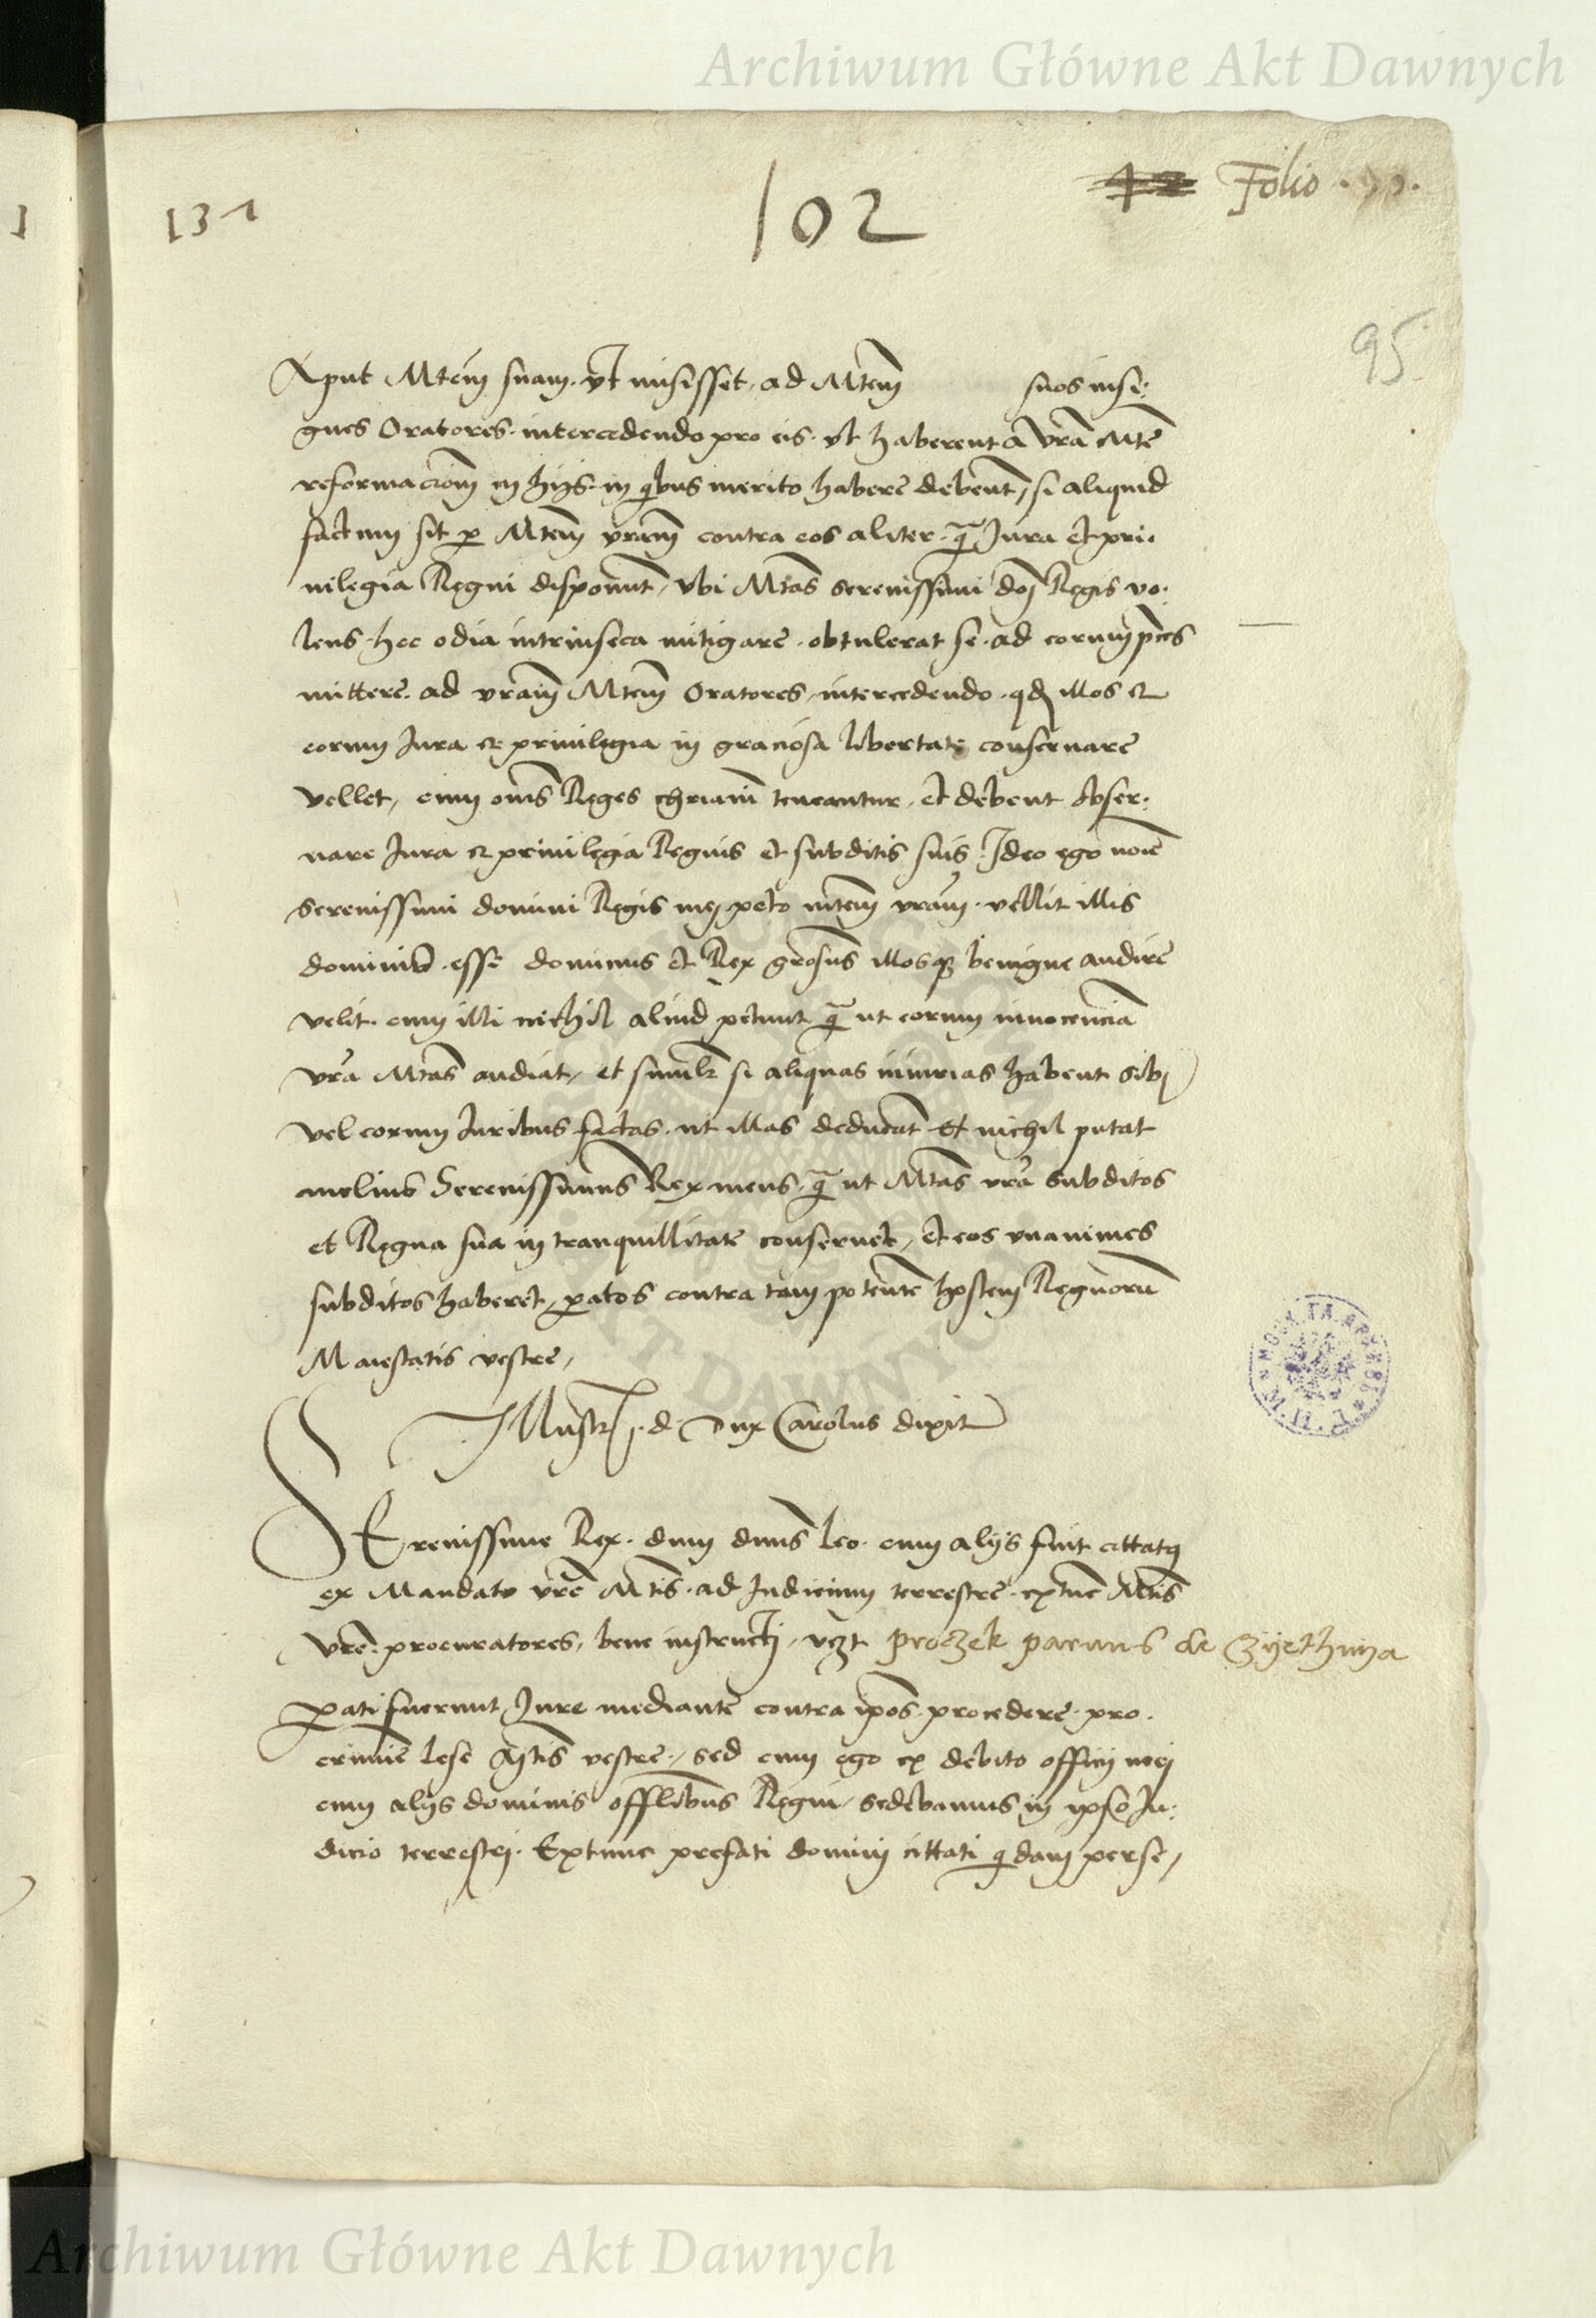 Archiwum Główne Akt Dawnych
Folio
131
102
95
Aput Mtem suam. vt misisset. ad Mtem suos insi:
gnes Oratores. intercedendo pro eis. vt haberent a vra Mte
reformacionem in hijs. in quibus merito habere debent, si aliquid
factum sit per Mtem vram contra eos aliter. quam Jura et pri:
uilegia Regni disponunt, Vbi Mtas serenissimi domini Regis vo:
lens hec odia intrinseca mitigare. obtulerat se. ad eorum preces
mittere. ad vram Mtem Oratores, intercedendo. quod illos et
eorum Jura et priuilegia in graciosa libertate conseruare
vellet, cum omnes Reges christiani teneantur, et debent obser:
uare Jura et priuilegia Regnis et subditis suis. Ideo ego nomine
serenissimi domini Regis mei peto mtem vram. vellit illis
dominis. esse dominus et Rex graciosus illosque benigne audire
velit. cum illi nichil aliud petunt quam ut eorum innocenciam
vra Mtas audiat, et similiter si aliquas iniurias habent sibi
vel eorum Juribus factas. ut illas deducant Et nichil putat
melius Serenissimus Rex meus. quam ut Mtas vra subditos
et Regna sua in tranquillitate conseruet, et eos vnanimes
subditos haberet, paratos contra tam potentem hostem Regnorum
Maiestatis vestre,
Illustris. d. Dux Carolus dixit
SErenissime Rex. dum dominus Leo. cum alijs fuit cittatus
ex Mandato vre Mtis. ad Iudicium terrestre. extunc Mtis
vre. procuratores, bene instructi, vzt Proczek paruus de Czyethnija
parati fuerunt Jure mediante contra ipsos procedere. pro.
crimine lese Mtis vestre, sed cum ego ex debito officij mei
cum alijs dominis officialibus Regni, sedebamus in ipso Ju:
dicio terrestri. Extunc prefati domini cittati quidam per se,
Archiwum Główne Akt Dawnych